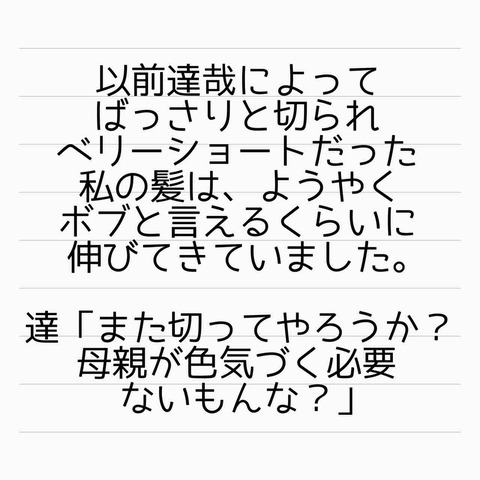 以前達哉によって
ばっさりと切られ
ベリーショートだった
私の髪は、ようやく
ボブと言えるくらいに
伸びてきていました。
達「また切ってやろうか?
母親が色気づく必要
ないもんな?」